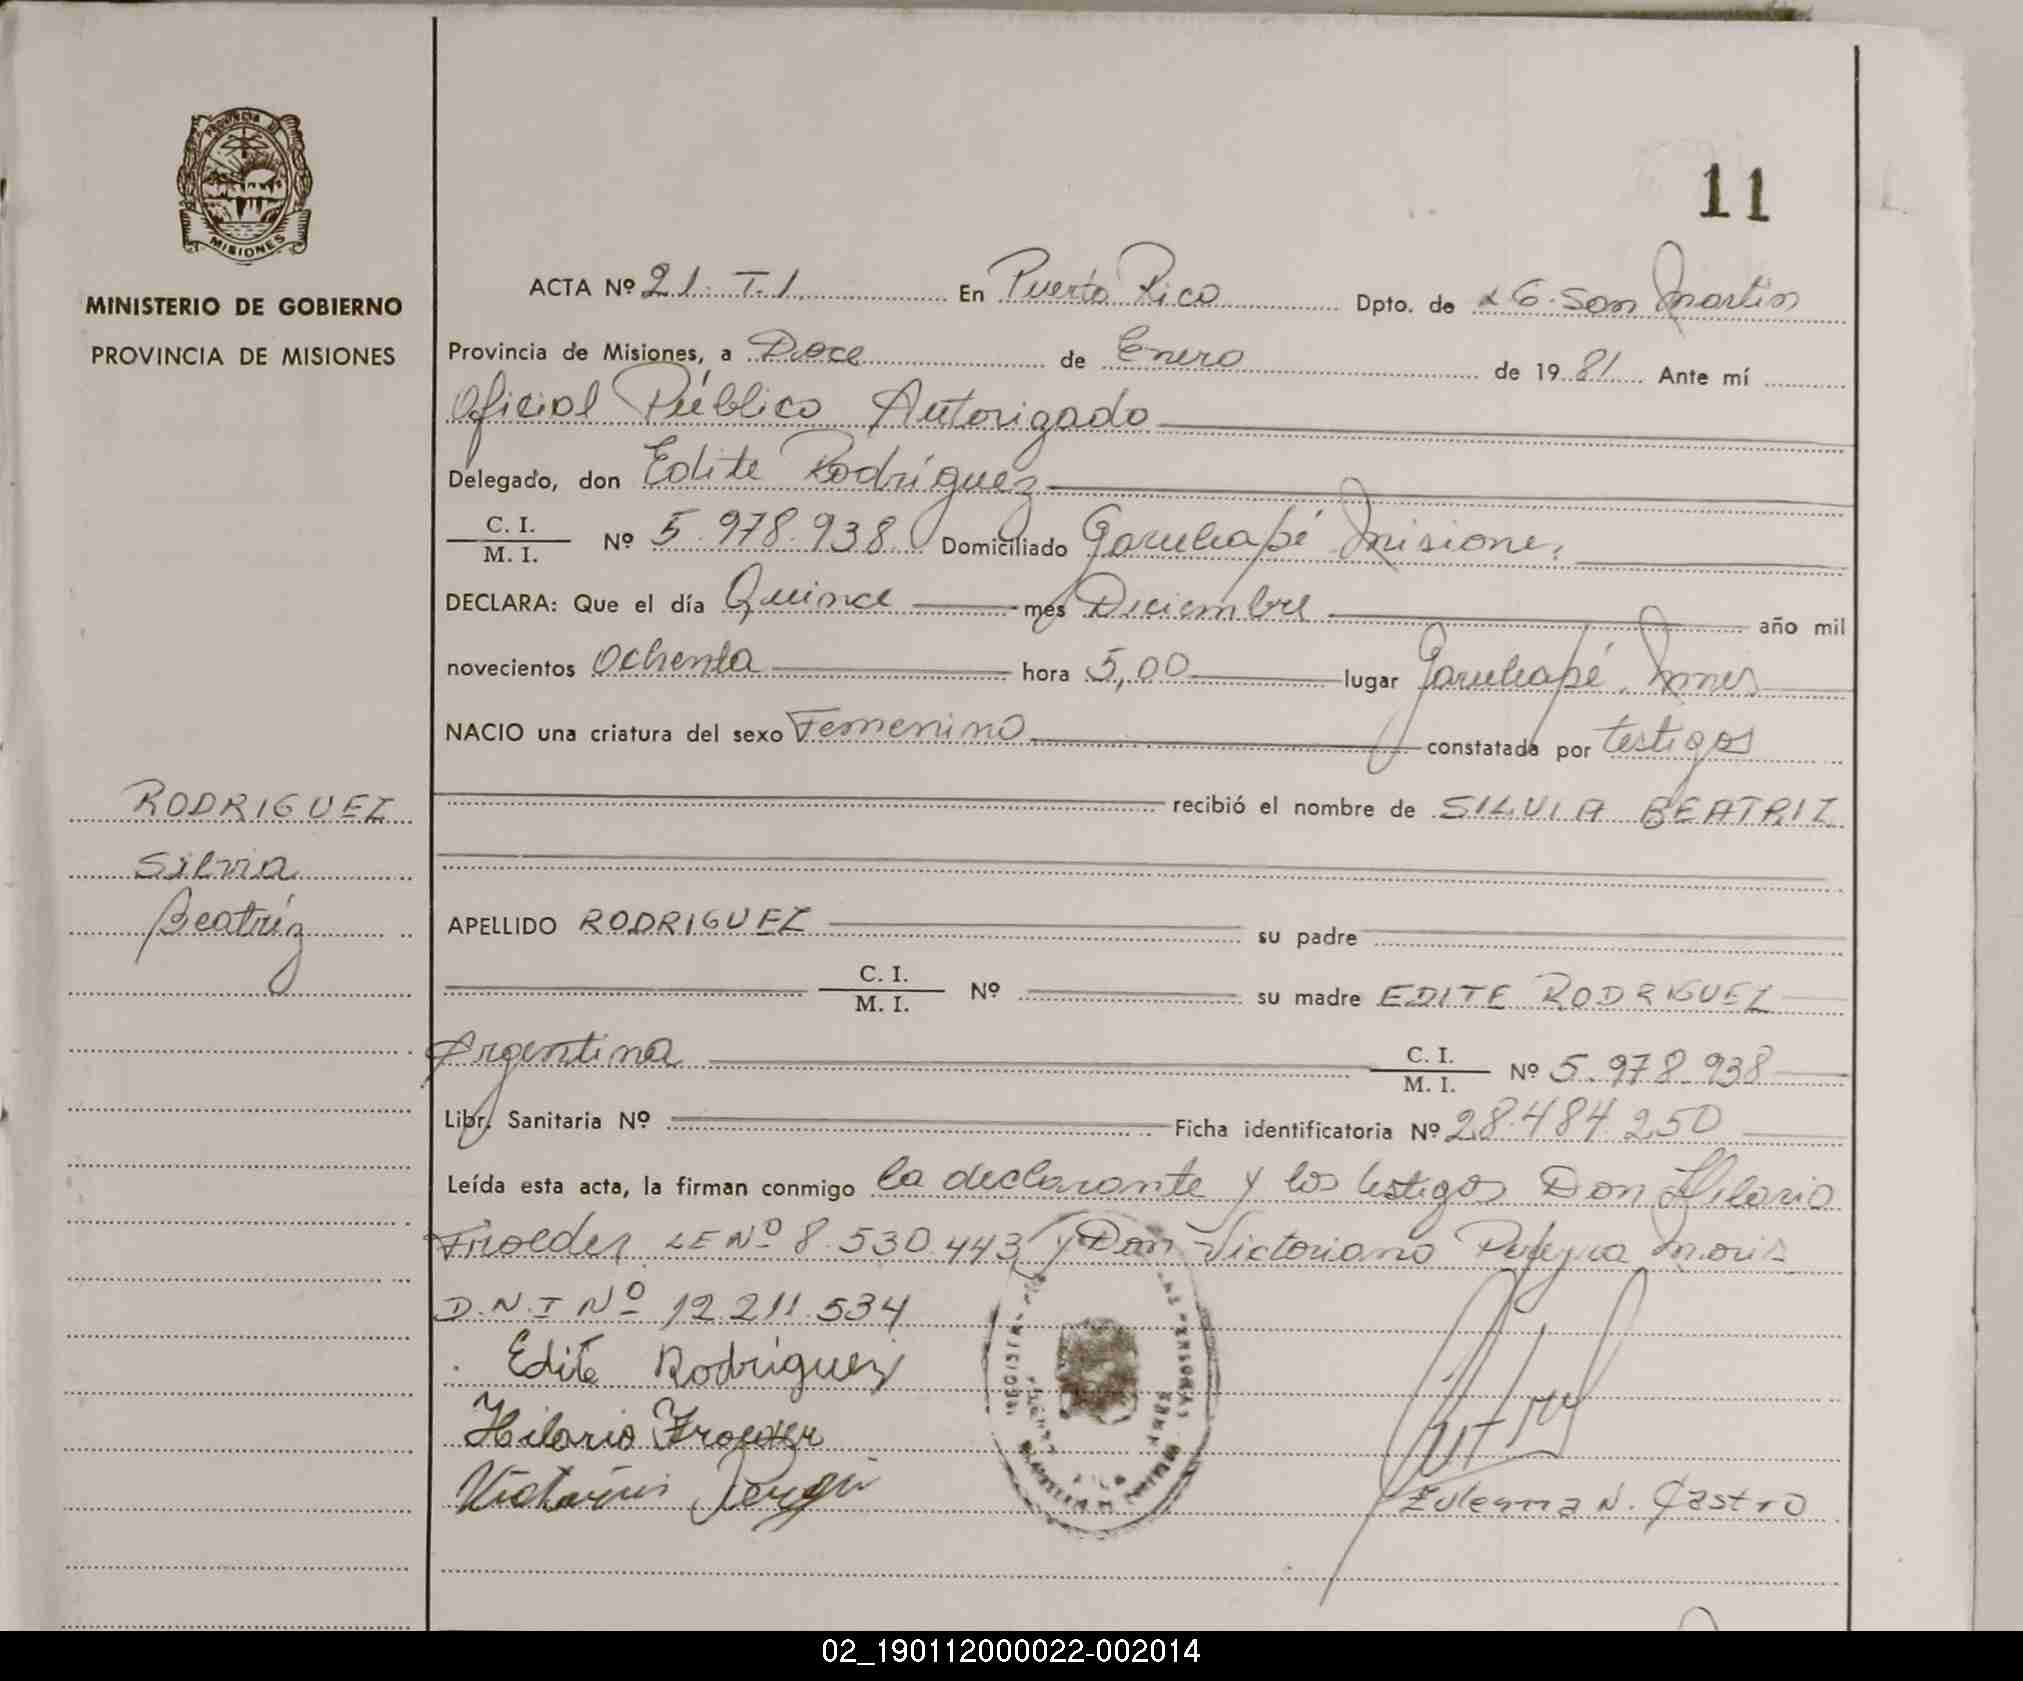 11
PROVINCIA DE
MISIONES
MINISTERIO DE GOBIERNO
PROVINCIA DE MISIONES
ACTA Nº 21. T.1 En Puerto Rico Dpto. de L G. San Martín
Provincia de Misiones, a Doce de Enero de 1981 Ante mí
Oficial Público Autorizado
Delegado, don Edite Rodríguez
C. I.
M. I. Nº 5.978.938 Domiciliado Garuhapé Misiones
DECLARA: Que el día Quince mes Diciembre año mil
novecientos Ochenta hora 5,00 lugar Garuhapé. Mnes
NACIO una criatura del sexo Femenino constatada por testigos
recibió el nombre de SILVIA BEATRIZ
RODRIGUEZ
Silvia
Beatríz
APELLIDO RODRIGUEZ su padre
C. I.
M. I. Nº su madre EDITE RODRIGUEZ
Argentina C. I.
M. I. Nº 5.978.938
Libr. Sanitaria Nº Ficha identificatoria Nº 28.484.250
Leída esta acta, la firman conmigo la declarante y los testigos Don Hilario
LE Nº 8.530.443 y Don Victoriano
D.N.I Nº 12.211.534
Edite Rodríguez
Hilario
N. Castro
02_190112000022-002014